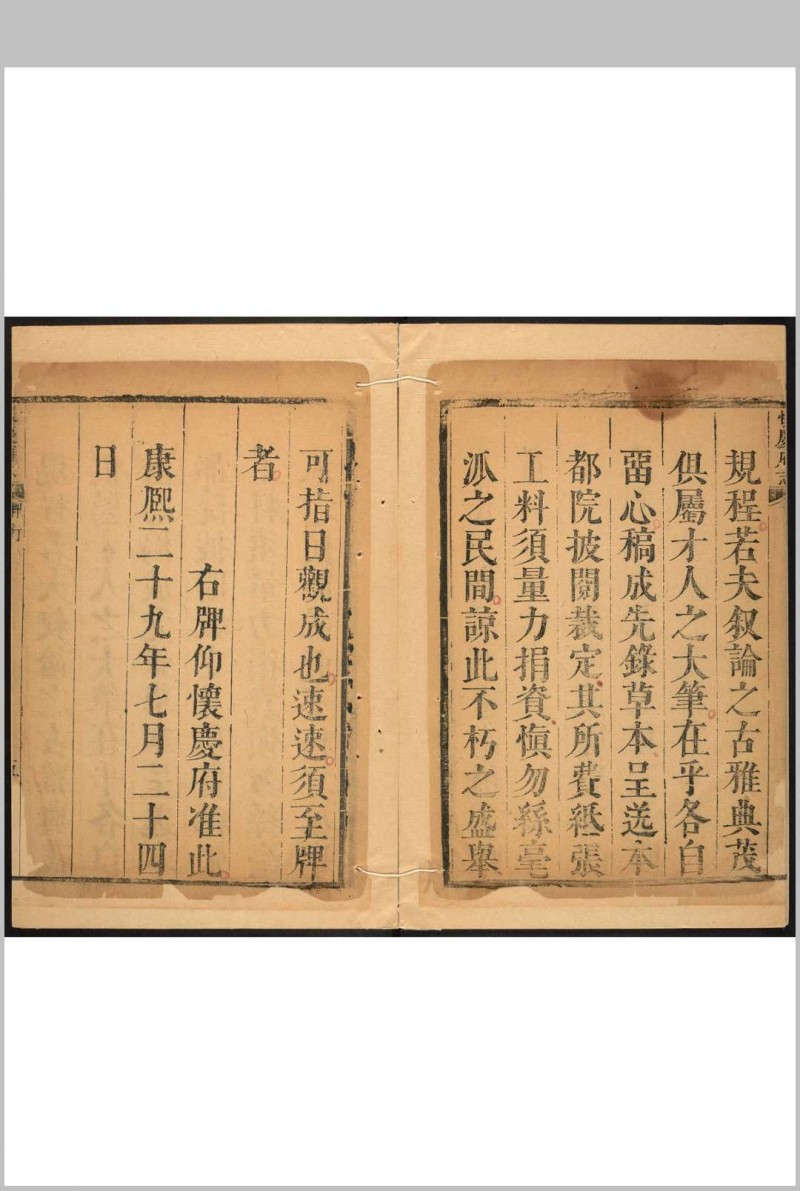 規程若夫叙論之古雅典茂
俱屬才人之大筆在乎各自
畱心稿成先錄草本呈送本
都院披閱裁定其所費紙張
工料須量力捐資愼勿絲毫
派之民間諒此不朽之盛舉
可指日觀成也速速須至牌
者
右牌仰懷慶府准此
康熙二十九年七月二十四
日